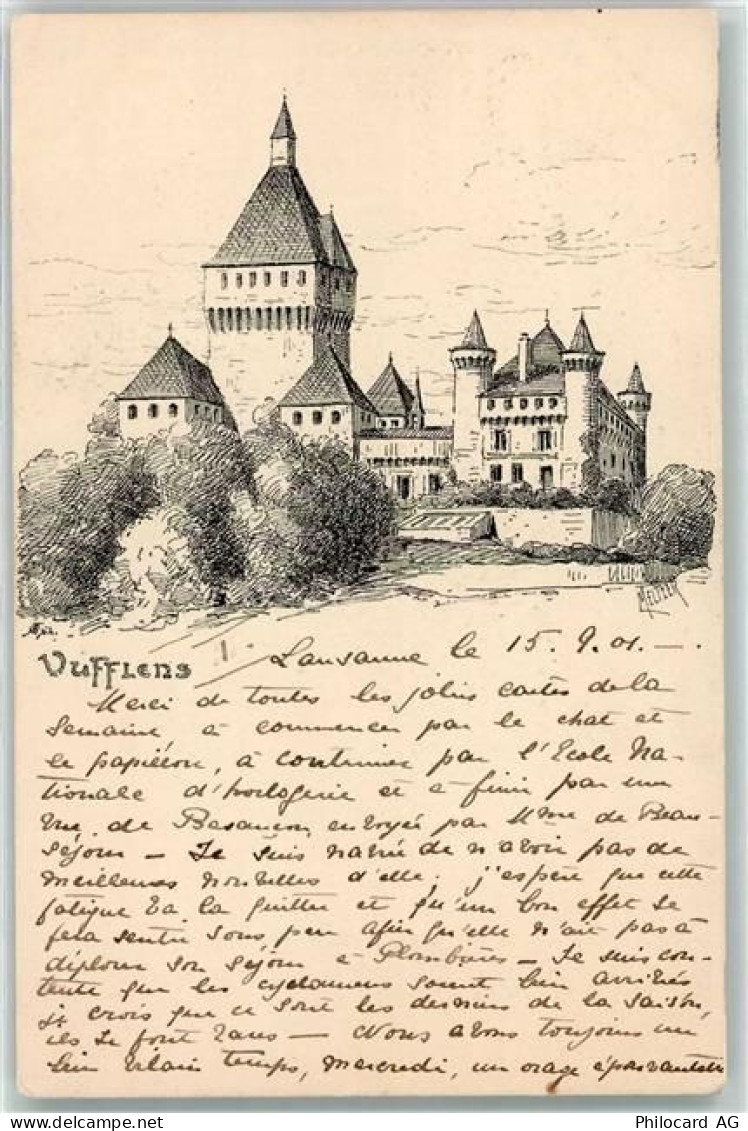 MELTZER
VUFFLENS
Lausanne le 15.9.01. —
Merci de toutes les jolies cartes de la
semaine à commencer par le chat et
le papillon, à continuer par l'Ecole Na-
tionale d'horlogerie et à finir par une
vue de Besançon envoyée par Mme de Beau-
séjour — Je suis navrée de n'avoir pas de
meilleures nouvelles d'elle, j'espère que cette
fatigue va la quitter et qu'un bon effet se
fera sentir sous peu afin qu'elle n'ait pas à
déplorer son séjour à Plombières — Je suis con-
tente que les cyclamens soient bien arrivés
je crois que ce sont les derniers de la saison,
ils se font rares — Nous avons toujours un
bien vilain temps, mercredi, un orage épouvantable
Philocard AG